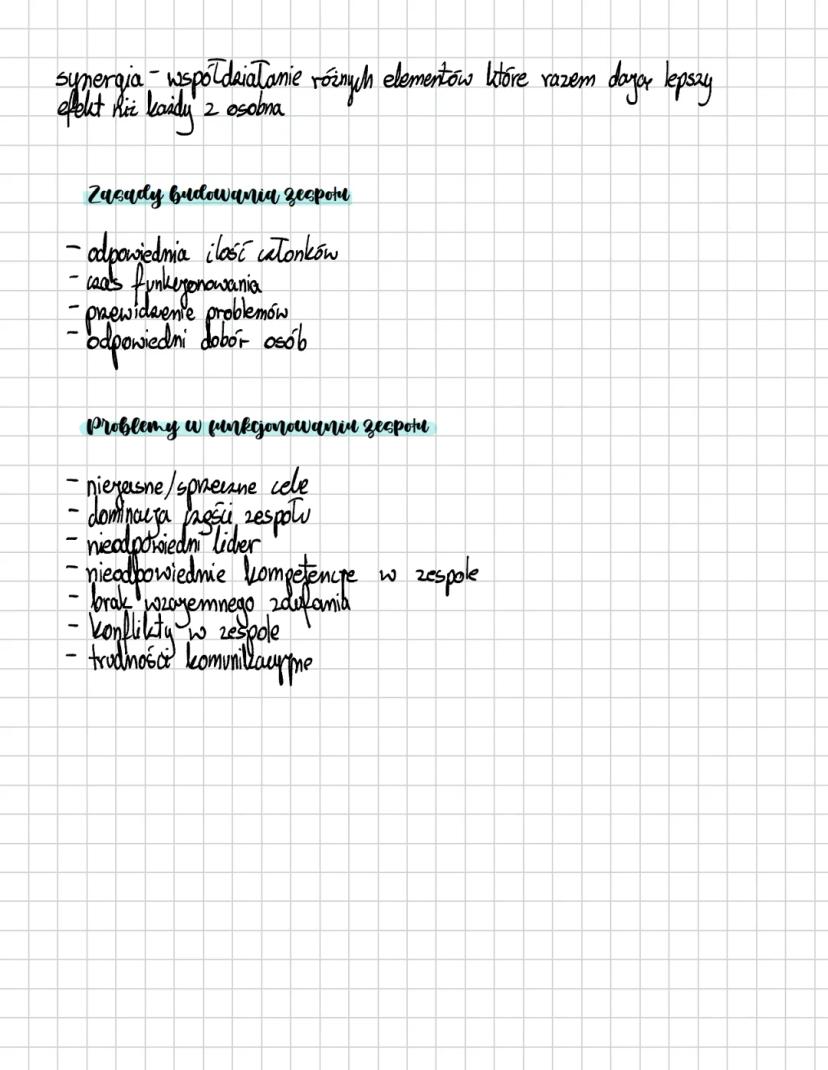 synergia - współdziałanie różnych elementów które razem dają lepszy
efekt niż każdy z osobna
Zasady budowania zespołu
- odpowiednia ilość członków
- czas funkcjonowania
- przewidzenie problemów
- odpowiedni dobór osób
Problemy w funkcjonowaniu zespołu
- niejasne/sprzeczne cele
- dominacja części zespołu
- nieodpowiedni lider
- nieodpowiednie kompetencje w zespole
- brak wzajemnego zdufania
- konflikty w zespole
- trudności komunikacyjne